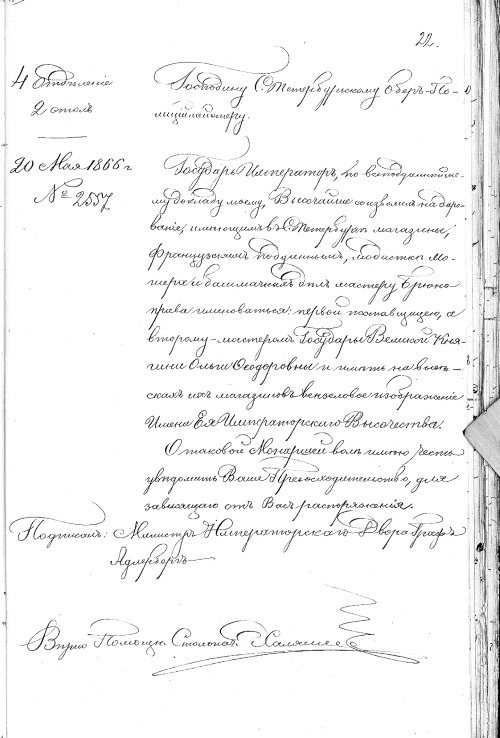 22.
4 Отдѣленіе
2 столъ
Господину С. Петербургскому Оберъ-По-
лицiймейстеру.
20 Мая 1866 г
№ 2557
Государь Императоръ, по всеподданнѣйше-
му докладу моему, Высочайше соизволилъ на даро-
ваніе, имѣющимъ въ С. Петербургѣ магазины,
Французскимъ подданнымъ, модисткѣ Мо-
и башмачныхъ дѣлъ мастеру
права именоваться: первой поставщицею, а
второму-мастеромъ Государыни Великой Кня-
гини Ольги Ѳеодоровны и имѣть на вывѣс-
кахъ ихъ магазиновъ вензеловое изображеніе
Имени Ея Императорскаго Высочества.
О таковой Монаршей волѣ имѣю честь
увѣдомить Ваше Превосходительство, для
зависящаго отъ Васъ распоряженія.
Подписалъ: Министръ Императорскаго Двора Графъ
Адлербергъ
Вѣрно Помощн. Столонач.